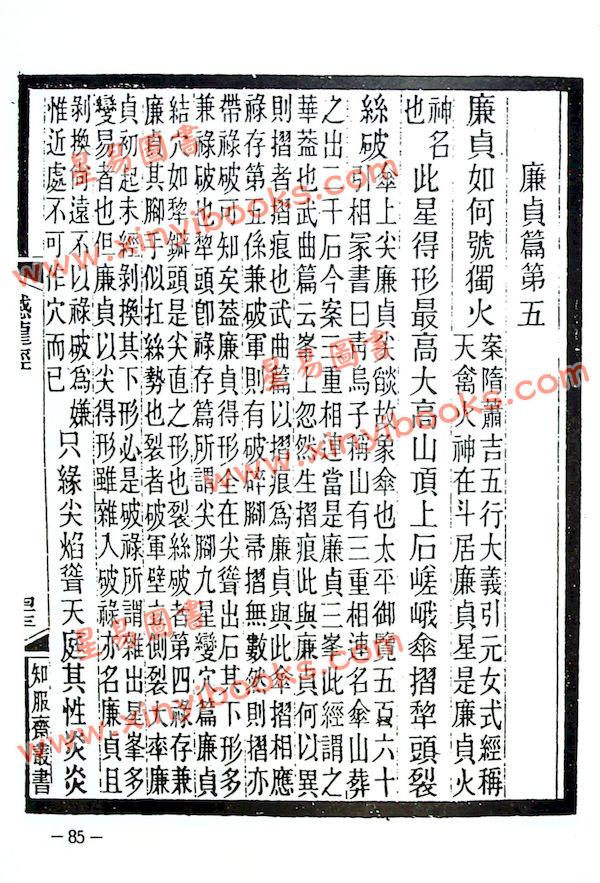 廉貞篇第五
廉貞如何號獨火案隋蕭吉五行大義引元女式經稱
天禽火神在斗居廉貞星是廉貞火
神名
也此星得形最高大高山頂上石嵯峨傘摺犂頭裂
絲破傘上尖廉貞尖燄故象傘也太平御覽五百六十
引相冢書曰青烏子稱山有三重相連名傘山葬
之出二千石今案三重相連當是廉貞三峯此經謂之
華葢也武曲篇云峯上忽然生摺痕此與廉貞何以異
則摺者摺痕也武曲篇以摺痕爲廉貞與此傘摺相應
祿存第五係兼破軍則有破碎腳帚摺無數然則摺亦
帶祿破可知矣葢廉貞得形全在尖聳出石其下形多
兼祿破也犂頭卽祿存篇所謂尖腳九星變穴篇廉貞
結穴如犂鐴頭是尖直之形也裂絲破者第四祿存兼
廉貞其腳手似扛絲勢也裂者破軍壁立側裂大率廉
貞初起未經剝換其下形必是破祿所謂雜出星峯多
變易者也但廉貞以尖得形雖雜入破祿亦名廉貞且
剝換尙遠不以祿破爲嫌
惟近處不可作穴而已只緣尖焰聳天庭其性炎炎
撼龍經
四三
知服齋叢書
-85-
星易圖書
www.xinyibooks.com
星易圖書
www.xinyibooks.com
星易圖書
www.xinyibooks.com